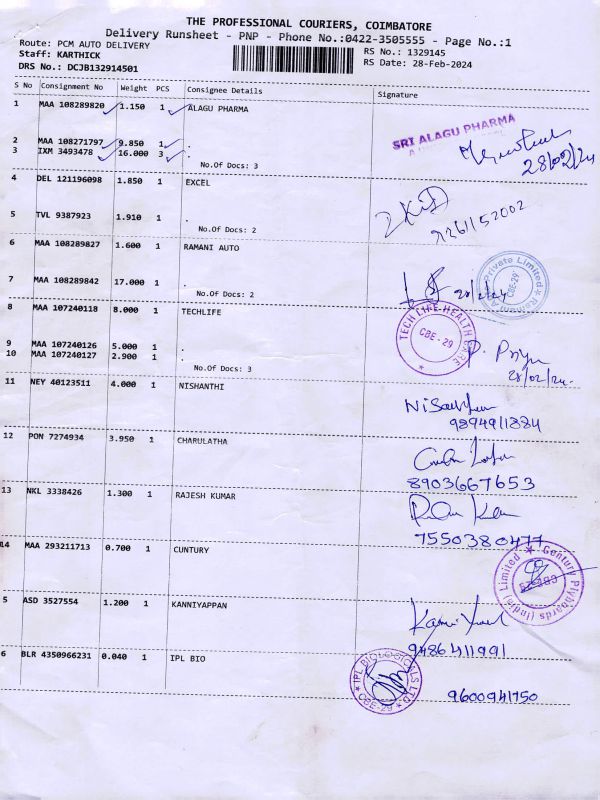 THE PROFESSIONAL COURIERS, COIMBATORE
Delivery Runsheet - PNP - Phone No.:0422-3505555 - Page No.:1
Route: PCM AUTO DELIVERY
Staff: KARTHICK
DRS No.: DCJB132914501
RS No.: 1329145
RS Date: 28-Feb-2024
S No Consignment No Weight PCS Consignee Details Signature
1 MAA 108289820 1.150 1 ALAGU PHARMA
SRI ALAGU PHARMA
2 MAA 108271797 9.850 1 .
3 IXM 3493478 16.000 3 .
28/02/24
No.Of Docs: 3
4 DEL 121196098 1.850 1 EXCEL
5 TVL 9387923 1.910 1 .
9261152002
No.Of Docs: 2
6 MAA 108289827 1.600 1 RAMANI AUTO
Private Limited
CBE-29
7 MAA 108289842 17.000 1 .
No.Of Docs: 2
8 MAA 107240118 8.000 1 TECHLIFE
TECH LIFE HEALTH CARE
CBE - 29
9 MAA 107240126 5.000 1 .
10 MAA 107240127 2.900 1 .
P. Priya
28/02/24.
No.Of Docs: 3
11 NEY 40123511 4.000 1 NISHANTHI
9894911884
12 PON 7274934 3.950 1 CHARULATHA
8903667653
13 NKL 3338426 1.300 1 RAJESH KUMAR
7550380477
14 MAA 293211713 0.700 1 CUNTURY
Century Plyboards (India) Limited
5 ASD 3527554 1.200 1 KANNIYAPPAN
9486411991
6 BLR 4350966231 0.040 1 IPL BIO
IPL BIOLOGICALS LTD
CBE-29
9600941750